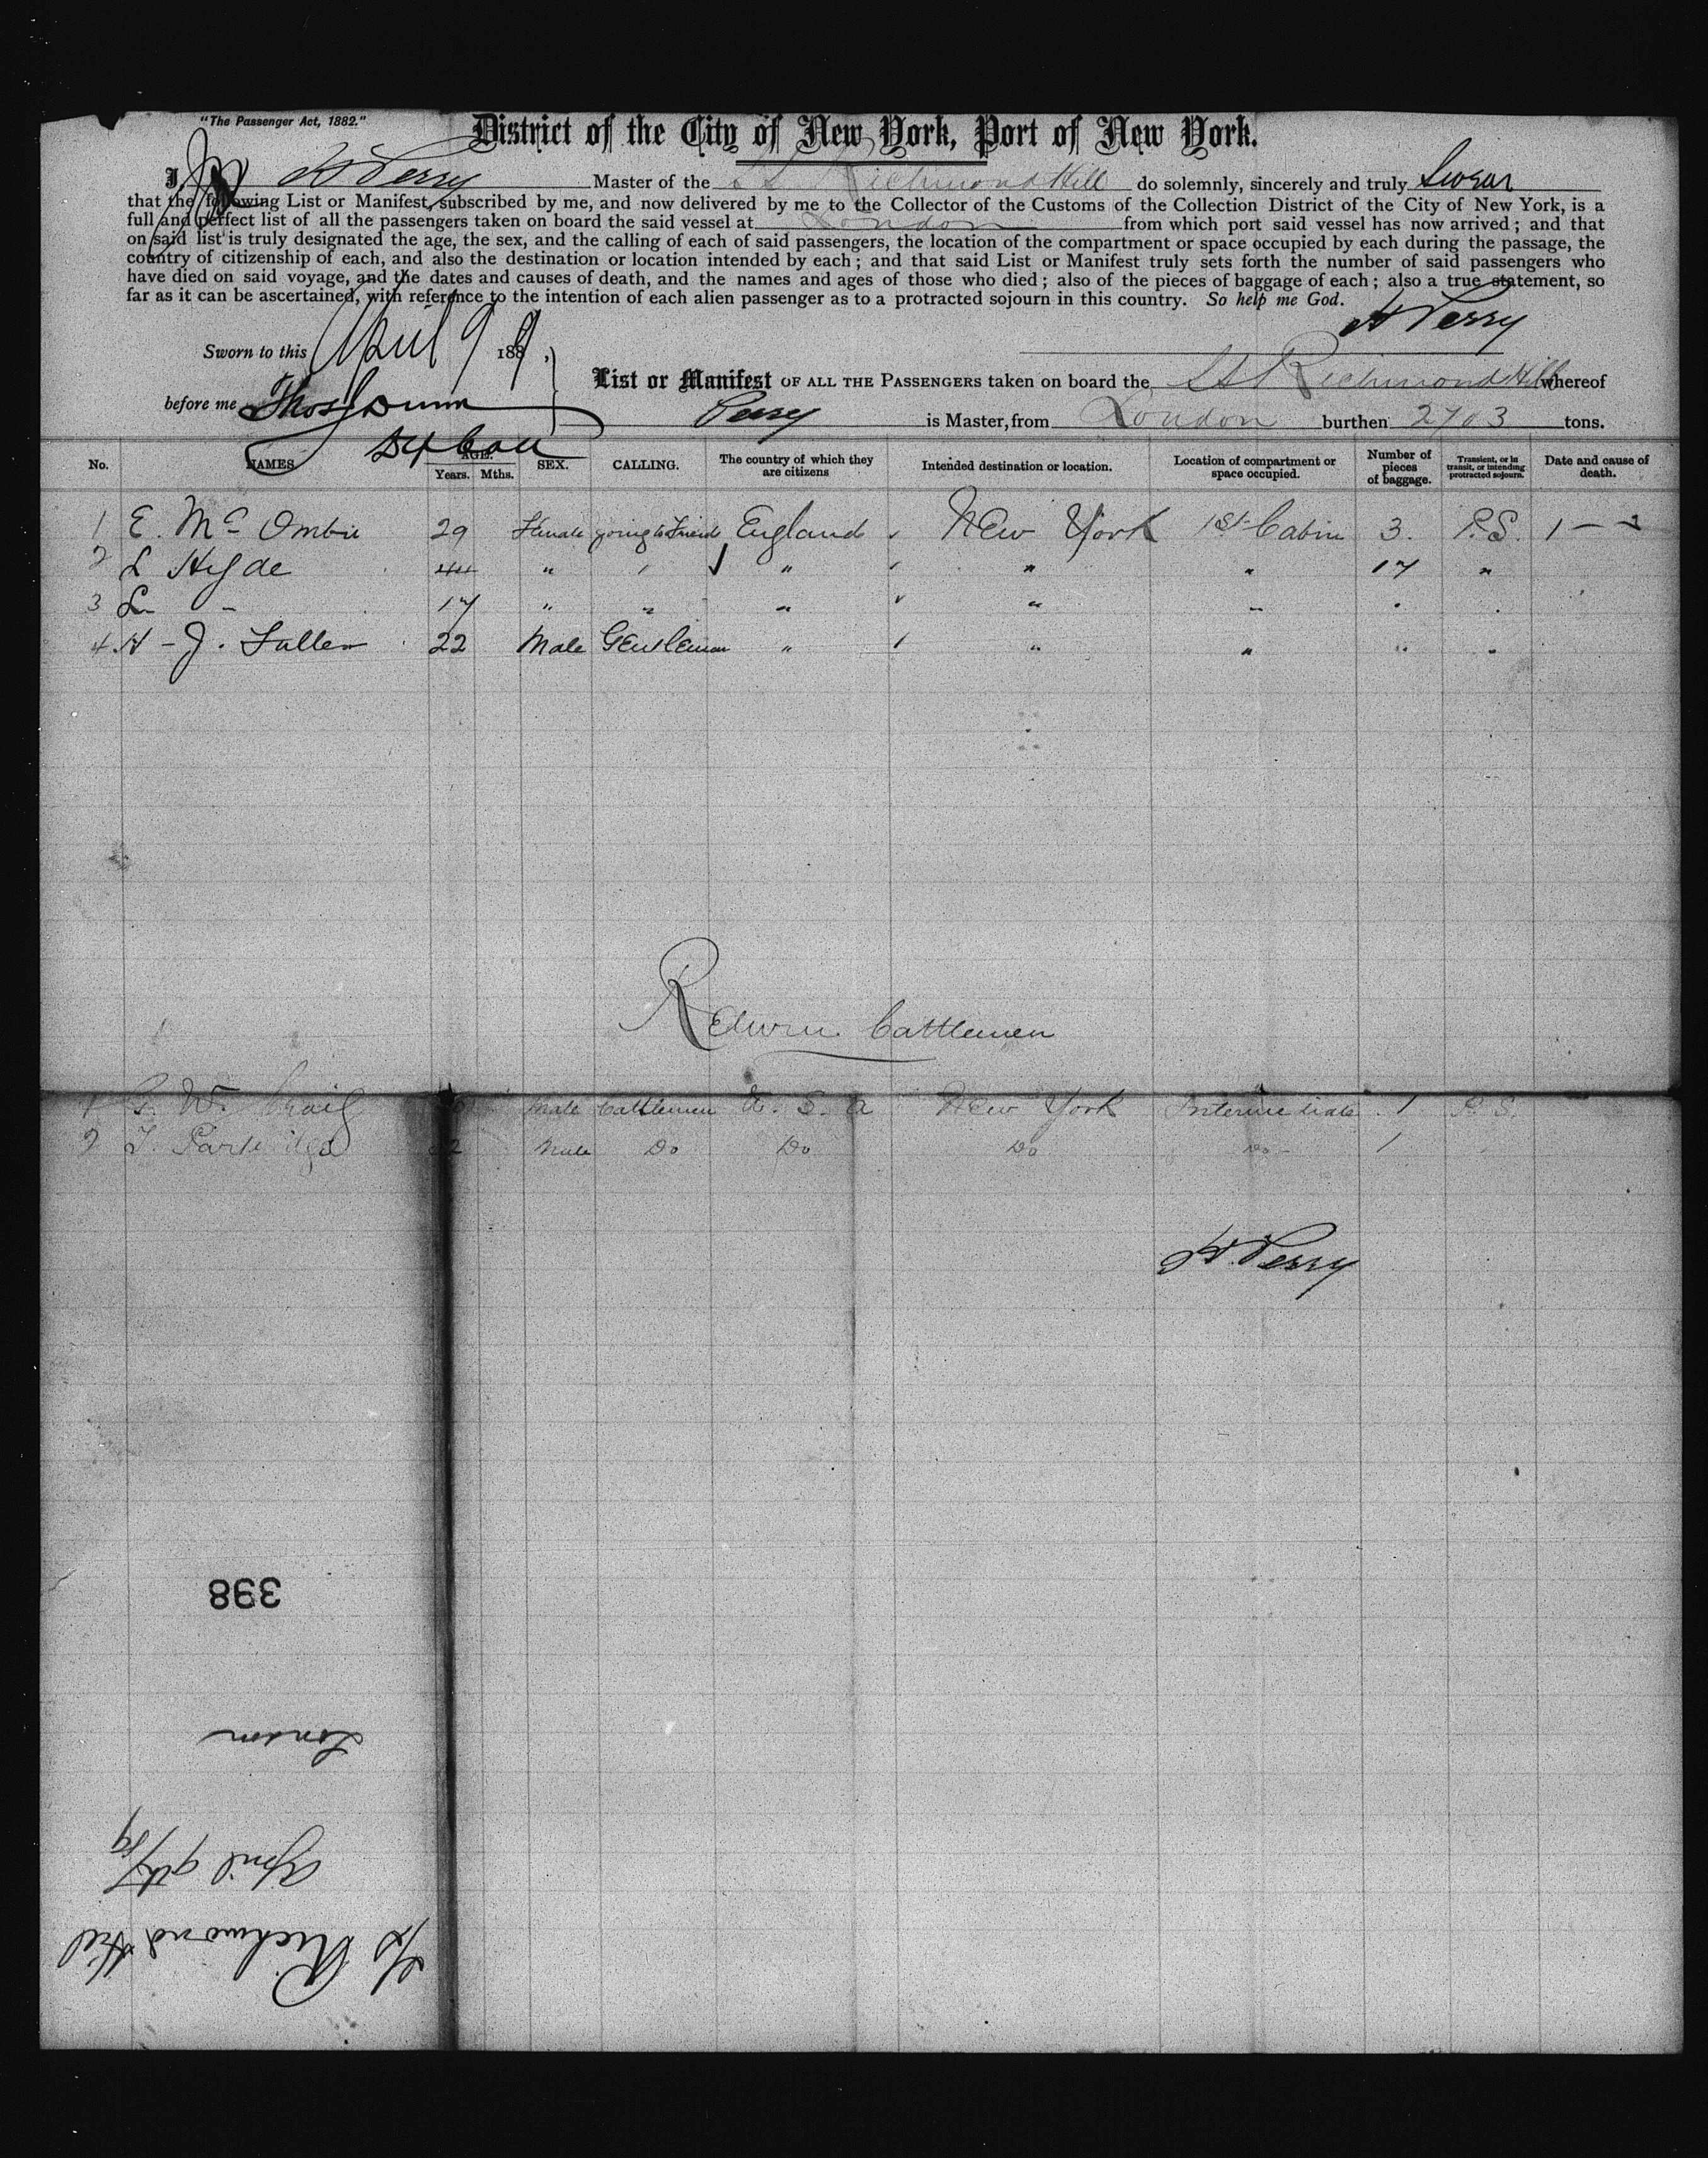 "The Passenger Act, 1882."
District of the City of New York, Port of New York.
I, H Perry Master of the SS Richmond Hill do solemnly, sincerely and truly Swear
that the following List or Manifest, subscribed by me, and now delivered by me to the Collector of the Customs of the Collection District of the City of New York, is a
full and perfect list of all the passengers taken on board the said vessel at London from which port said vessel has now arrived; and that
on said list is truly designated the age, the sex, and the calling of each of said passengers, the location of the compartment or space occupied by each during the passage, the
country of citizenship of each, and also the destination or location intended by each; and that said List or Manifest truly sets forth the number of said passengers who
have died on said voyage, and the dates and causes of death, and the names and ages of those who died; also of the pieces of baggage of each; also a true statement, so
far as it can be ascertained, with reference to the intention of each alien passenger as to a protracted sojourn in this country. So help me God.
H Perry
Sworn to this April 9 1889,
before me Thos Dunn
Dy Coll
List or Manifest OF ALL THE PASSENGERS taken on board the SS Richmond Hill whereof
Perry is Master, from London burthen 2703 tons.
No. NAMES AGE. Years. Mths. SEX. CALLING. The country of which they are citizens Intended destination or location. Location of compartment or space occupied. Number of pieces of baggage. Transient, or in transit, or intending protracted sojourn. Date and cause of death.
1 E. Mc Ombie 29 Female going to Friends England New York 1st Cabin 3. P.S. 1 –
2 L Hyde 44 " " " " " 17 "
3 L - 17 " " " " "
4 H - J. Fuller 22 Male Gentleman " " " " "
Return Cattlemen
1 G. W. Craig Male Cattlemen U. S. A New York Intermediate 1 P.S.
2 T. Partridge 22 Male Do Do Do Do 1
H. Perry
398
London
April 9th/89
S/S Richmond Hill